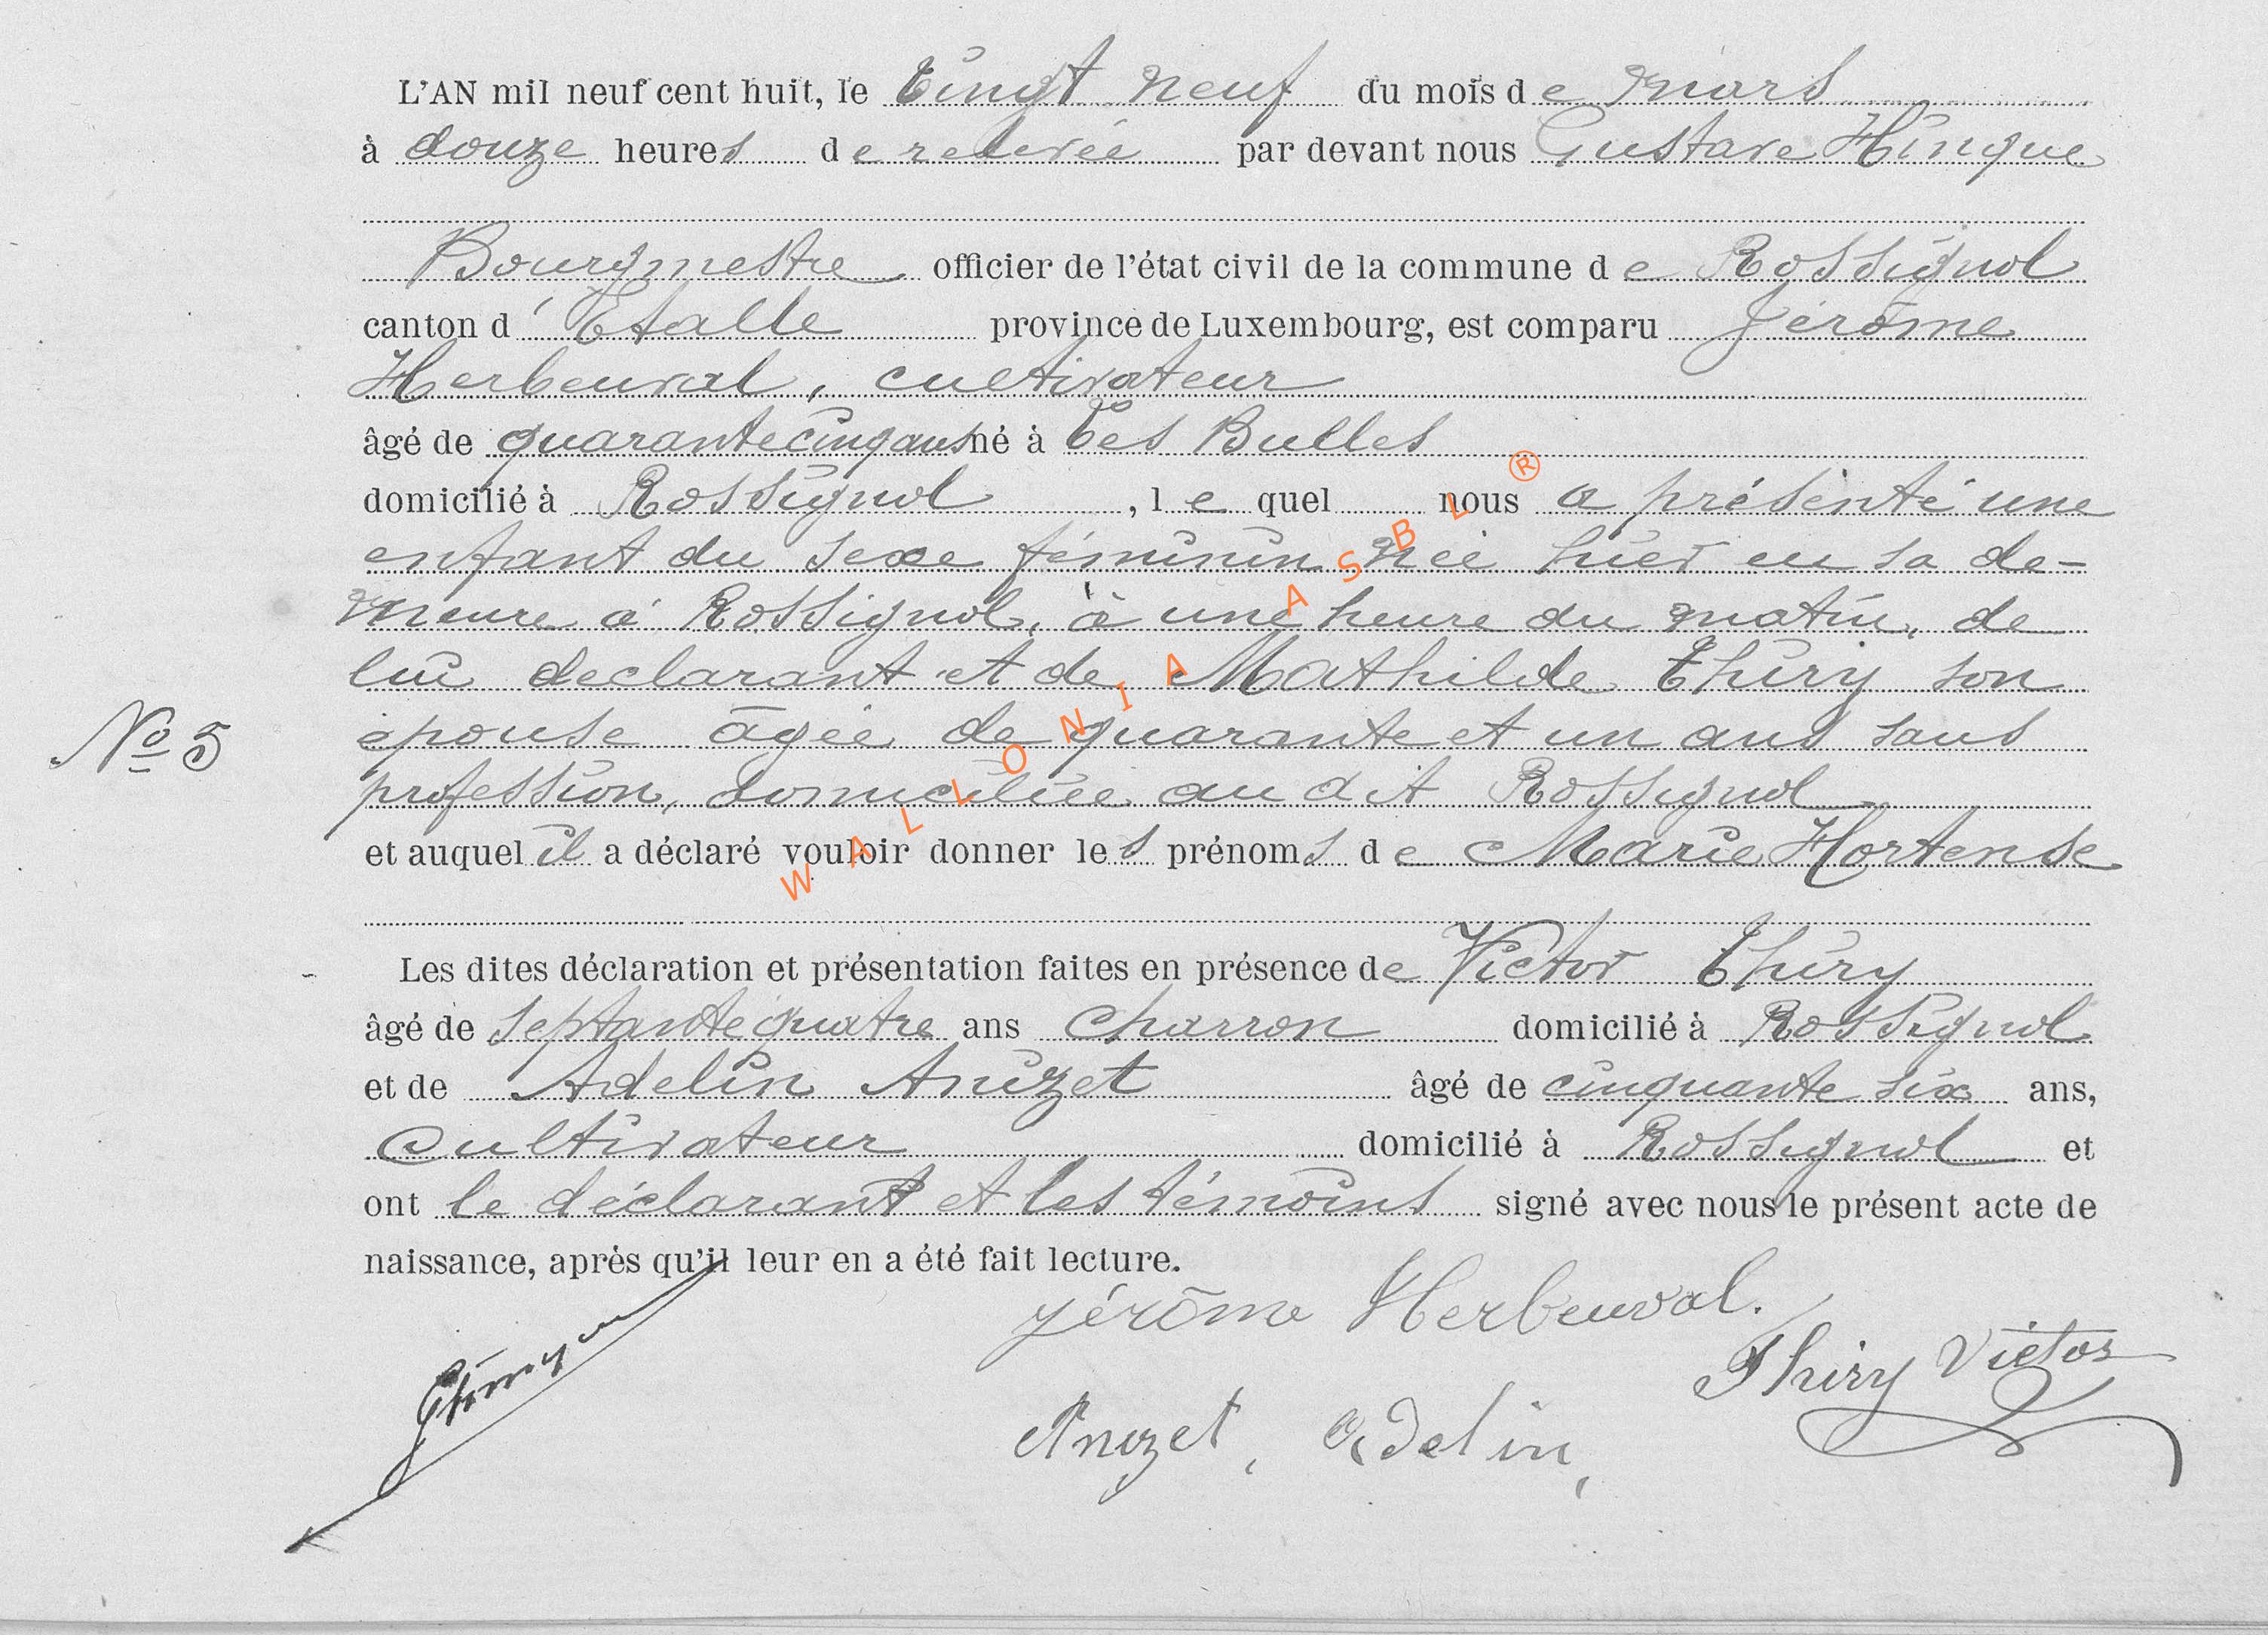 L'AN mil neuf cent huit, le vingt neuf du mois de mars
à douze heures de relevée par devant nous Gustave Hinque
Bourgmestre officier de l'état civil de la commune de Rossignol
canton d'Etalle province de Luxembourg, est comparu Jérôme
Herbeuval, cultivateur
âgé de quarante cinq ans né à Les Bulles
domicilié à Rossignol, lequel nous a présenté une
enfant du sexe féminin née hier en sa de-
meure à Rossignol, à une heure du matin, de
lui declarant et de Mathilde Thiry son
épouse âgée de quarante et un ans sans
No 5
profession, domiciliée au dit Rossignol
et auquel il a déclaré vouloir donner les prénoms de Marie Hortense
Les dites déclaration et présentation faites en présence de Victor Thiry
âgé de septante quatre ans charron domicilié à Rossignol
et de Adelin Anizet âgé de cinquante six ans,
cultivateur domicilié à Rossignol et
ont le déclarant et les témoins signé avec nous le présent acte de
naissance, après qu'il leur en a été fait lecture.
Jérôme Herbeuval.
Thiry Victor
Anizet, Adelin,
WALLONIA ASBL ®